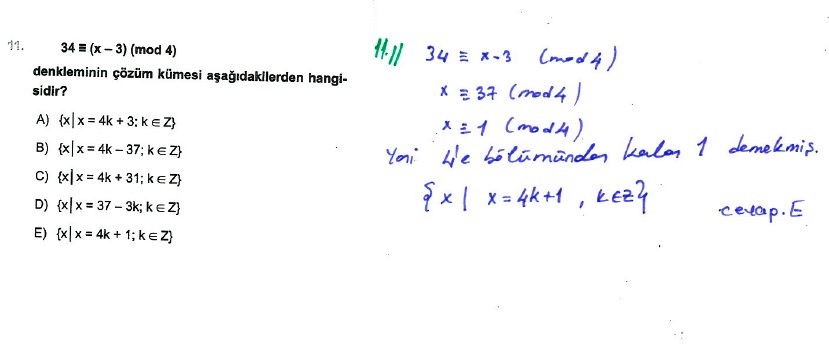 11.
34 ≡ (x – 3) (mod 4)
denkleminin çözüm kümesi aşağıdakilerden hangi-
sidir?
A) {x| x = 4k + 3; k ∈ Z}
B) {x| x = 4k – 37; k ∈ Z}
C) {x| x = 4k + 31; k ∈ Z}
D) {x| x = 37 – 3k; k ∈ Z}
E) {x| x = 4k + 1; k ∈ Z}
11.//
34 ≡ x-3 (mod 4)
x ≡ 37 (mod 4)
x ≡ 1 (mod 4)
Yani 4'e bölümünden kalan 1 demekmiş.
{x | x = 4k+1 , k∈Z}
cevap.E